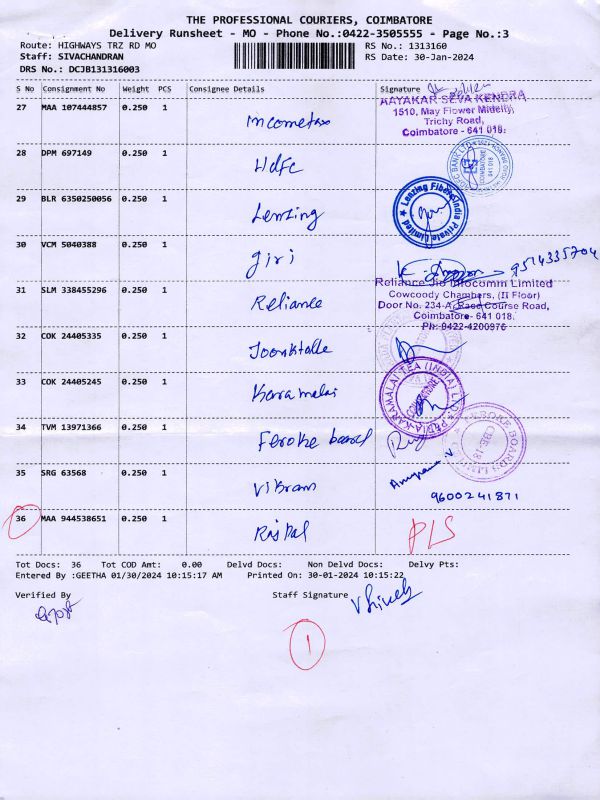 THE PROFESSIONAL COURIERS, COIMBATORE
Delivery Runsheet - MO - Phone No.:0422-3505555 - Page No.:3
Route: HIGHWAYS TRZ RD MO RS No.: 1313160
Staff: SIVACHANDRAN RS Date: 30-Jan-2024
DRS No.: DCJB131316003
S No Consignment No Weight PCS Consignee Details Signature
27 MAA 107444857 0.250 1 Incometax
AAYAKAR SEVA KENDRA
1510, May Flower Midcity,
Trichy Road,
Coimbatore - 641 018.
28 DPM 697149 0.250 1 Hdfc
29 BLR 6350250056 0.250 1 Lenzing
Lenzing Fibers India Private Limited
30 VCM 5040388 0.250 1 Jiri
9514335704
31 SLM 338455296 0.250 1 Reliance
Reliance Jio Infocomm Limited
Cowcoody Chambers, (II Floor)
Door No. 234-A, Race Course Road,
Coimbatore- 641 018.
Ph: 0422-4200976
32 COK 24405335 0.250 1
33 COK 24405245 0.250 1 Karamalai
KARAMALAI TEA (INDIA) LTD
COIMBATORE
34 TVM 13971366 0.250 1 Feroke board
FEROKE BOARDS LIMITED
CBE-18
35 SRG 63568 0.250 1 Vikram
Anupama V
9600241871
36 MAA 944538651 0.250 1 PLS
Tot Docs: 36 Tot COD Amt: 0.00 Delvd Docs: Non Delvd Docs: Delvy Pts:
Entered By :GEETHA 01/30/2024 10:15:17 AM Printed On: 30-01-2024 10:15:22
Verified By Staff Signature
1